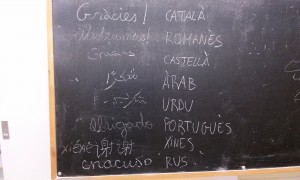 Gràcies! CATALÀ
Multzumesc! ROMANÈS
Gracias CASTELLÀ
شكرا ÀRAB
URDU
Obrigado PORTUGUÈS
XIÈXIE 谢谢 XINÈS
спасибо RUS